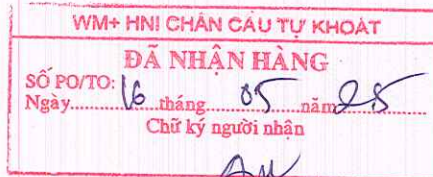 WM+ HNI CHÂN CẦU TỰ KHOÁT
ĐÃ NHẬN HÀNG
SỐ PO/TO:
Ngày 16 tháng 05 năm 25
Chữ ký người nhận